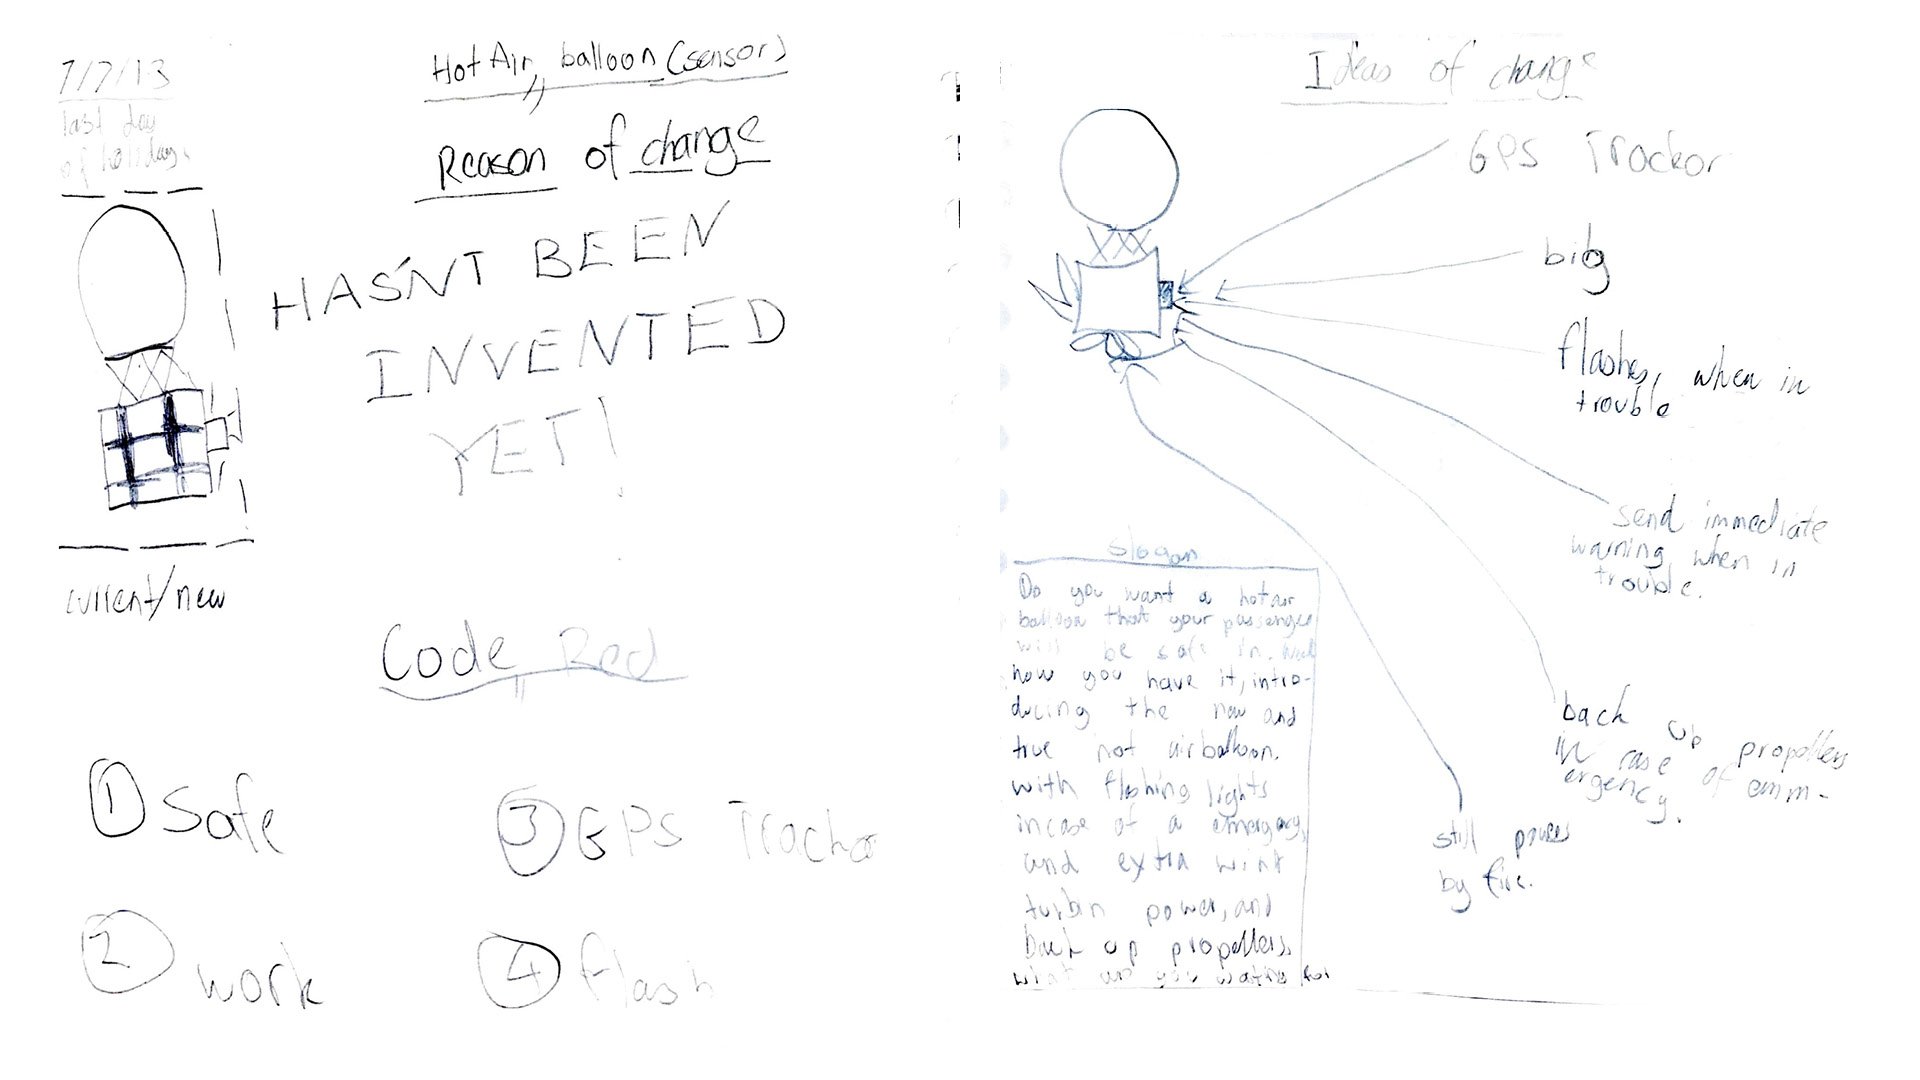 7/7/13
last day
of holidays
Hot Air balloon (sensor)
Reason of change
HASNT BEEN
INVENTED
YET!
current/new
Code Red
1 Safe
2 work
3 GPS Tracker
4 flash
Ideas of change
GPS Trackor
big
flashes, when in
trouble
send immediate
warning when in
trouble.
back up propellers
in case of emm-
ergency.
still powers
by fire.
Slogan
Do you want a hot air
balloon that your passenges
will be safe in. Well
now you have it, intro-
ducing the new and
true hot airballoon.
with flashing lights
incase of a emergacy,
and extra wink
turbin power, and
back up propellers.
what are you waiting for